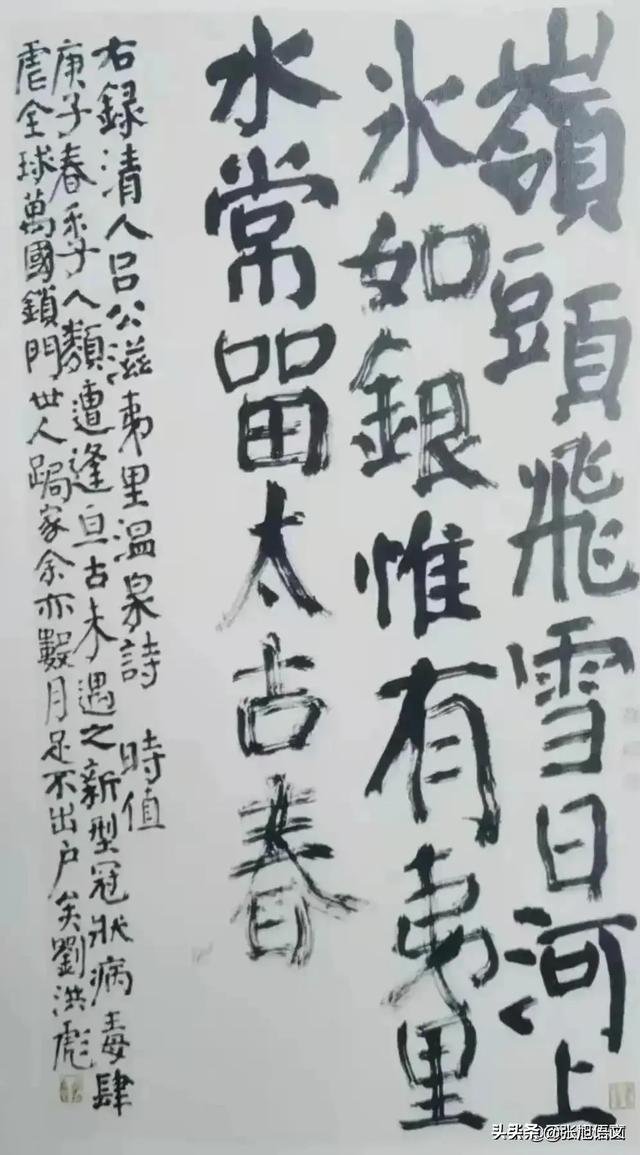 嶺頭飛雪日河上
氷如銀惟有夷里
水常留太古春
右録清人吕公滋夷里温泉詩 時值
庚子春季人類遭逢亘古未遇之新型冠狀病毒肆
虐全球萬國鎖門世人跼家余亦數月足不出户矣劉洪彪
头条@张旭语文